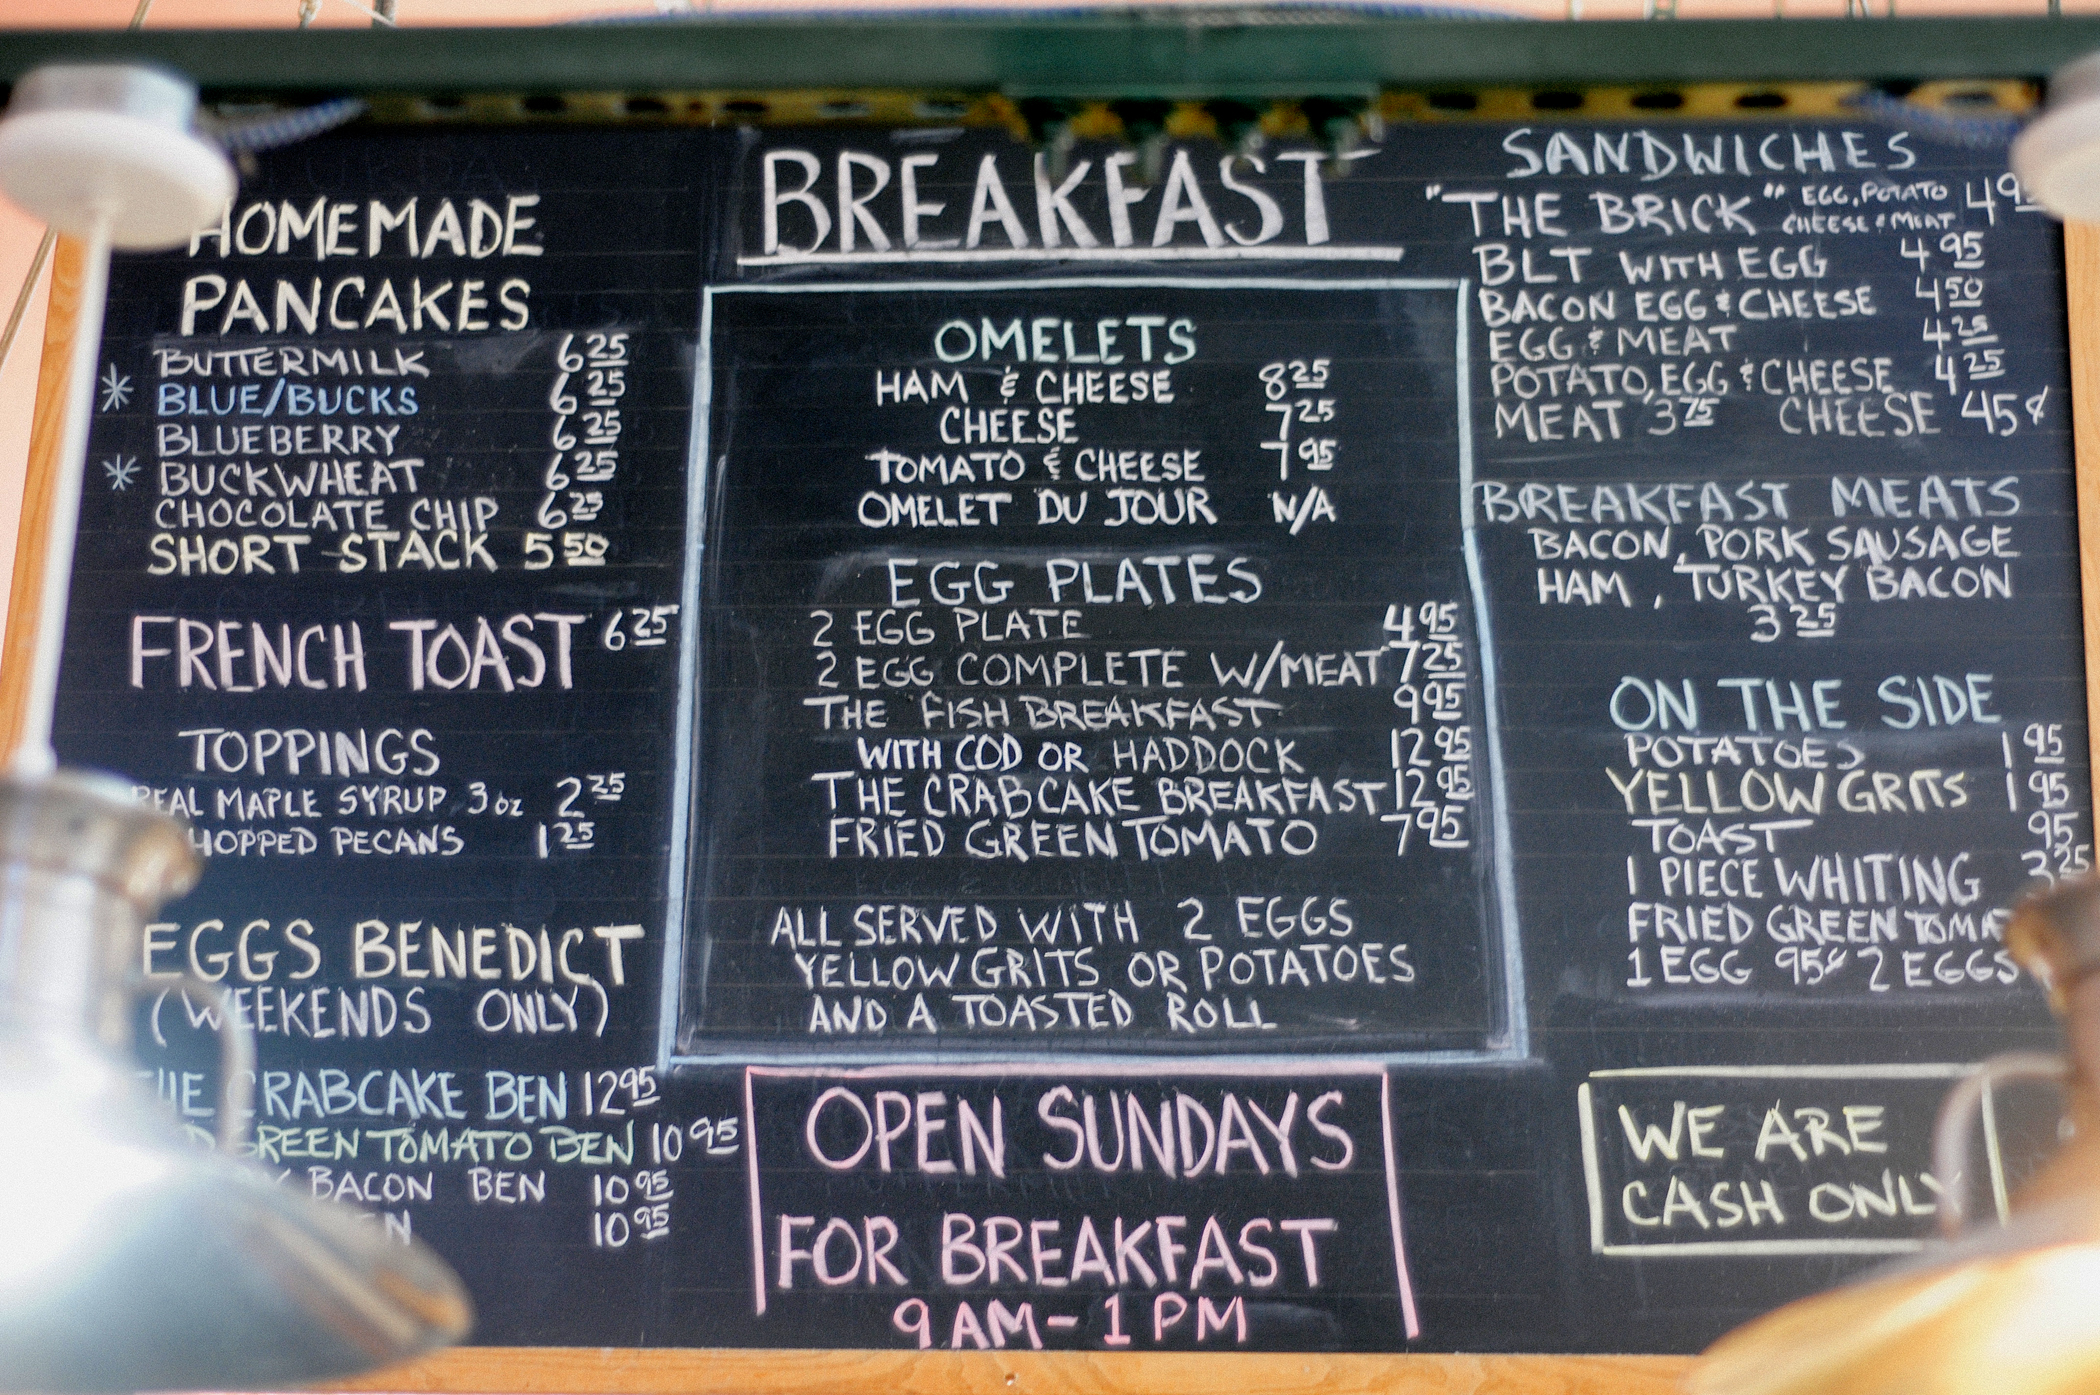 HOMEMADE
PANCAKES
BUTTERMILK 6 25
* BLUE/BUCKS 6 25
BLUEBERRY 6 25
* BUCKWHEAT 6 25
CHOCOLATE CHIP 6 25
SHORT STACK 5 50
FRENCH TOAST 6 25
TOPPINGS
REAL MAPLE SYRUP 3 oz 2 25
CHOPPED PECANS 1 25
EGGS BENEDICT
(WEEKENDS ONLY)
THE CRABCAKE BEN 12 95
GREEN TOMATO BEN 10 95
BACON BEN 10 95
10 95
BREAKFAST
OMELETS
HAM & CHEESE 8 25
CHEESE 7 25
TOMATO & CHEESE 7 95
OMELET DU JOUR N/A
EGG PLATES
2 EGG PLATE 4 95
2 EGG COMPLETE W/MEAT 7 25
THE FISH BREAKFAST 9 95
WITH COD OR HADDOCK 12 95
THE CRABCAKE BREAKFAST 12 95
FRIED GREEN TOMATO 7 95
ALL SERVED WITH 2 EGGS
YELLOW GRITS OR POTATOES
AND A TOASTED ROLL
OPEN SUNDAYS
FOR BREAKFAST
9 AM - 1 PM
SANDWICHES
"THE BRICK" EGG, POTATO CHEESE & MEAT
BLT WITH EGG 4 95
BACON EGG & CHEESE 4 50
EGG & MEAT 4 25
POTATO, EGG & CHEESE 4 25
MEAT 3 75 CHEESE 45¢
BREAKFAST MEATS
BACON, PORK SAUSAGE
HAM, TURKEY BACON
3 25
ON THE SIDE
POTATOES 1 95
YELLOW GRITS 1 95
TOAST 95
1 PIECE WHITING 3 25
FRIED GREEN
1 EGG 95¢ 2 EGGS
WE ARE
CASH ONLY